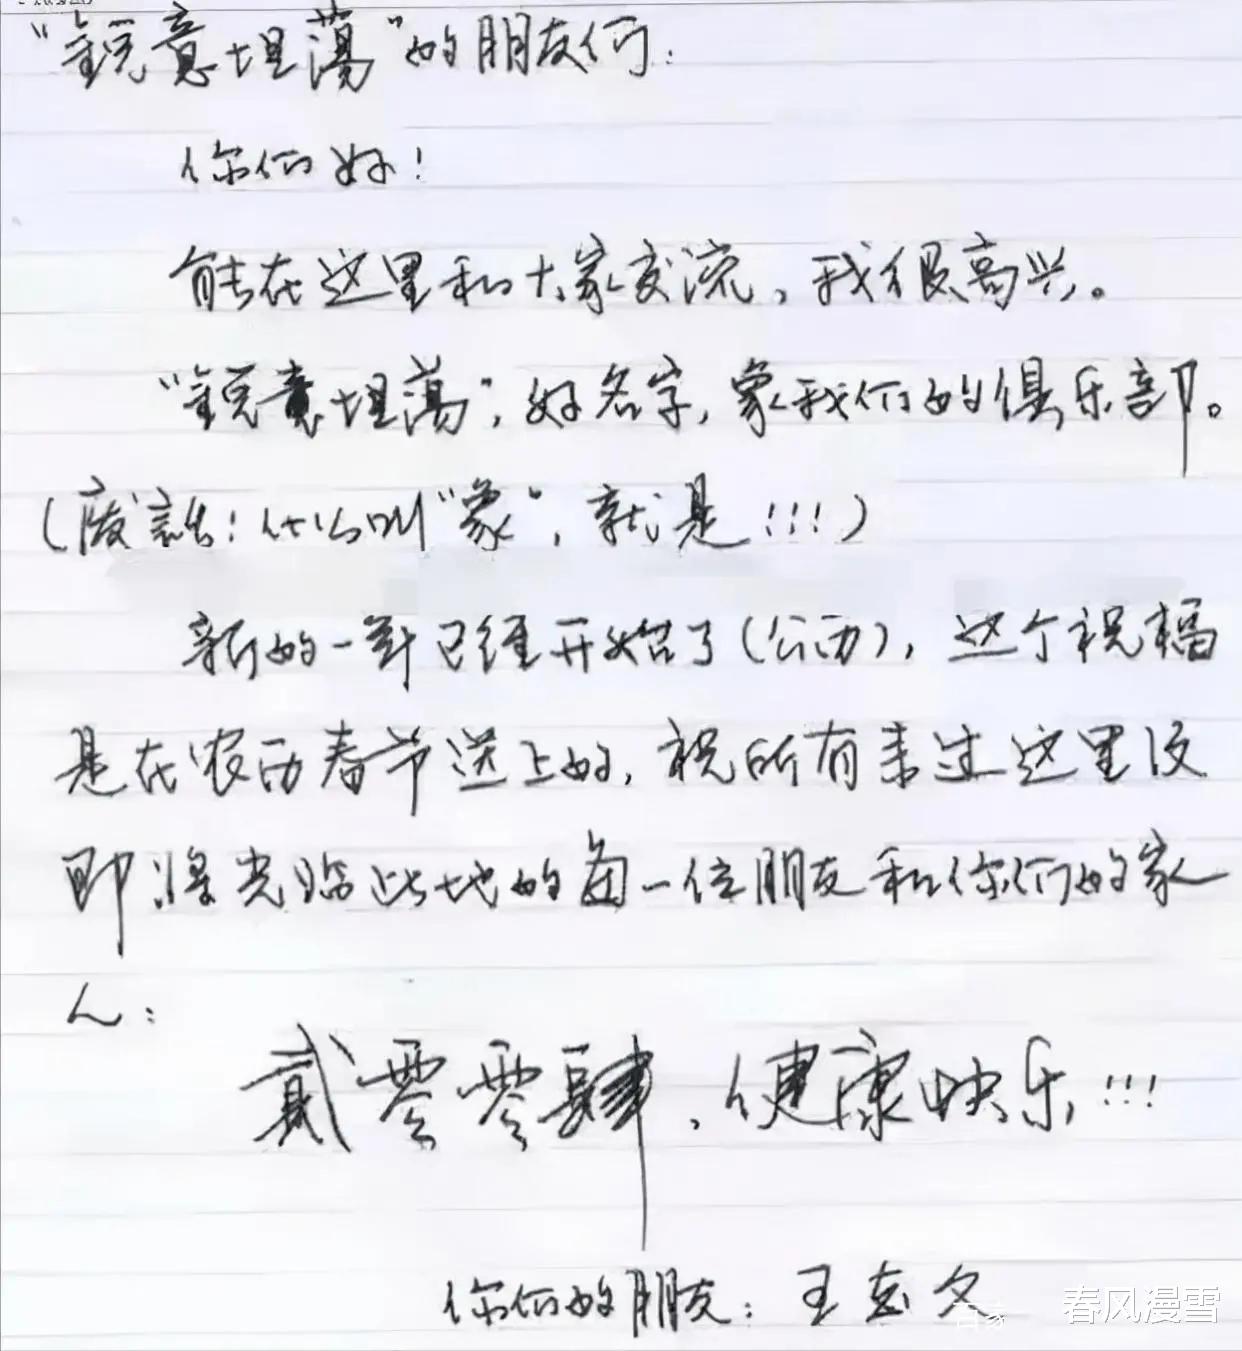 “锐意坦荡”的朋友们：
你们好！
能在这里和大家交流，我很高兴。
“锐意坦荡”，好名字，象我们的俱乐部。
（废话！什么叫“象”，就是！！！）
新的一年已经开始了（公历），这个祝福
是在农历春节送上的，祝所有来过这里及
即将光临此地的每一位朋友和你们的家
人：
贰零零肆，健康快乐！！！
你们的朋友：王志文
百家
春风漫雪